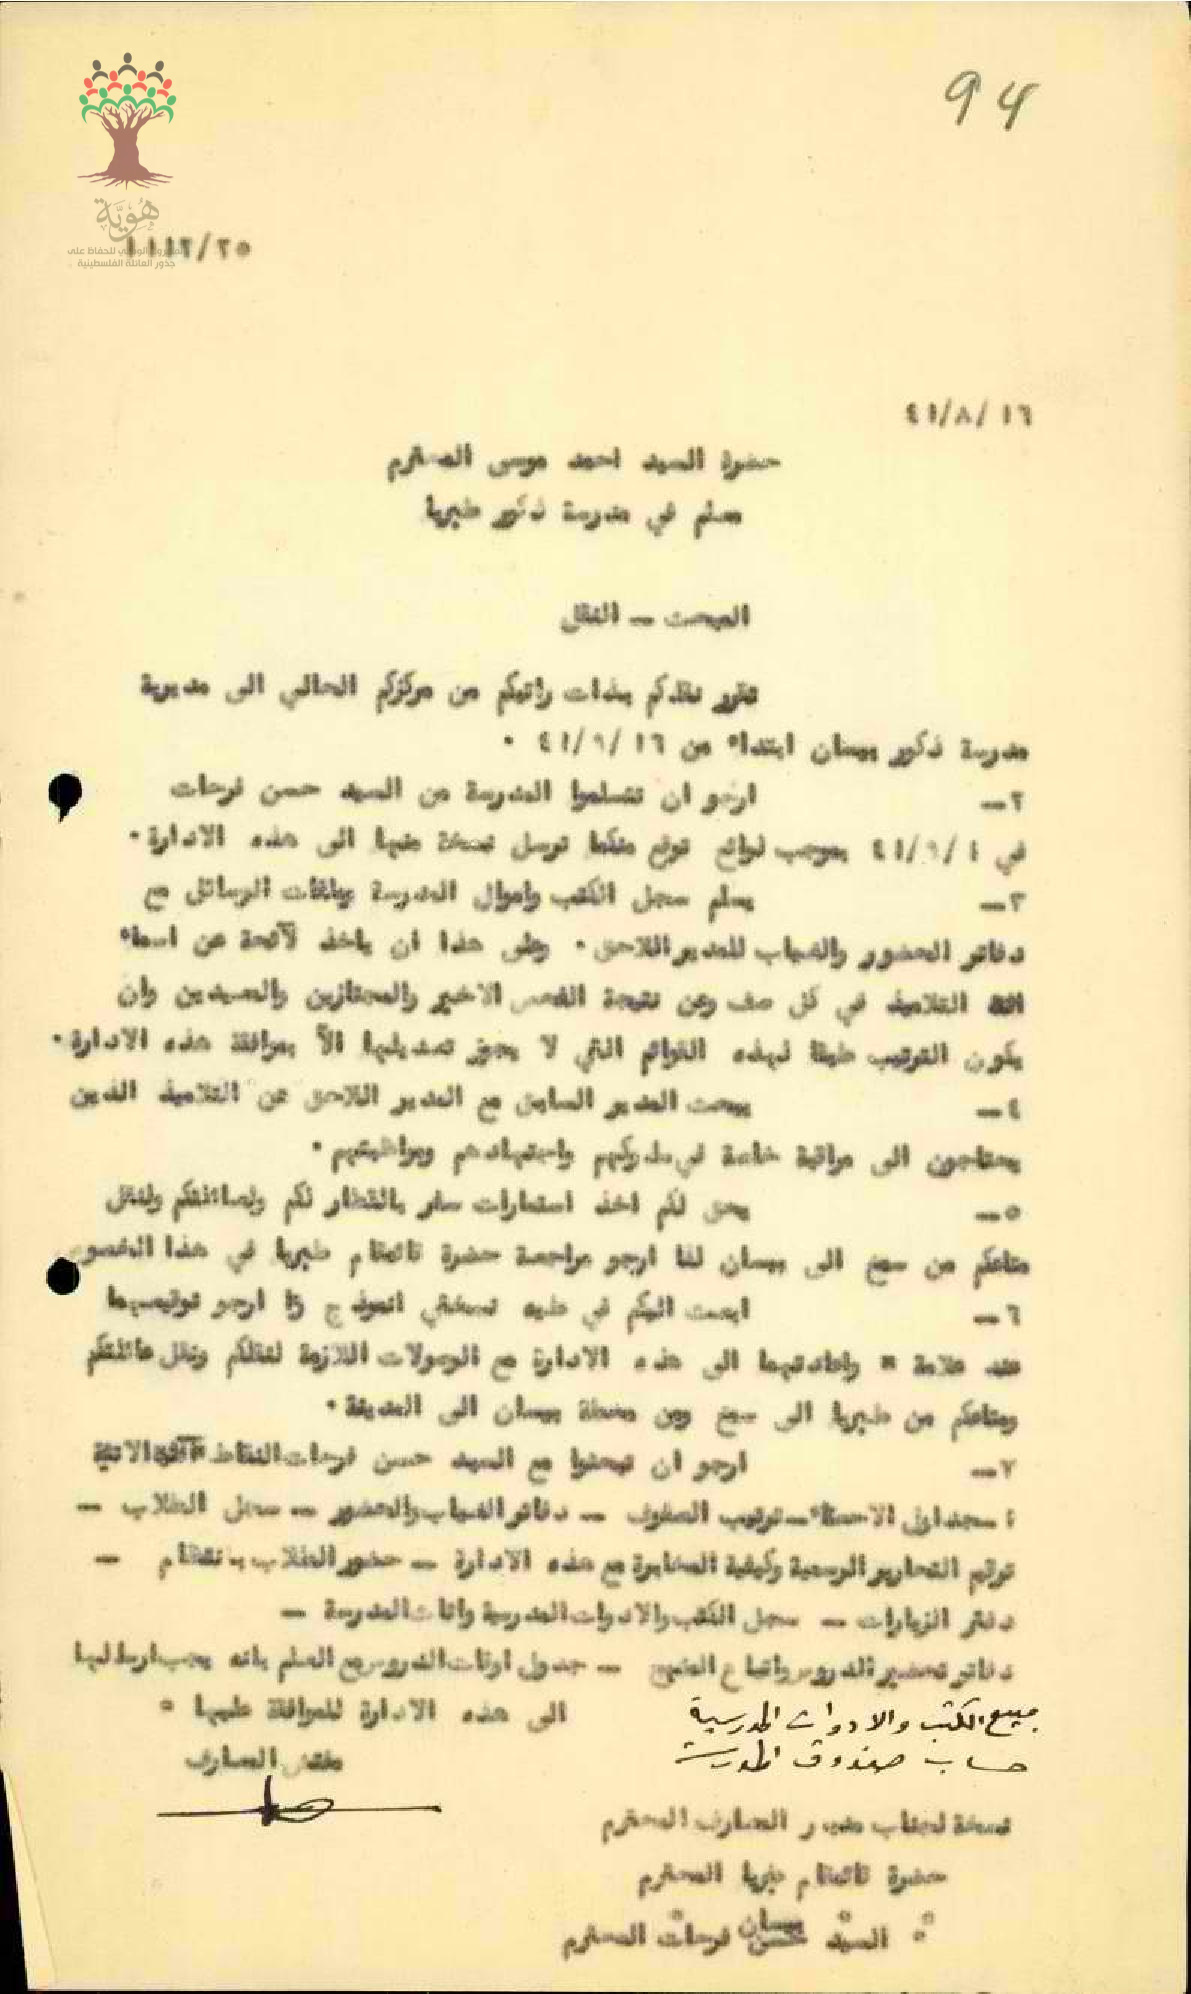 94
هوية
المشروع الوطني للحفاظ على
جذور العائلة الفلسطينية
٢٥/١١١٢
١٦/٨/٤١
حضرة السيد احمد موسى المحترم
معلم في مدرسة ذكور طبريا
المبحث – النقل
تقرر نقلكم بذات راتبكم من مركزكم الحالي الى مديرية
مدرسة ذكور بيسان ابتداء من ١٦/٩/٤١ ٠
٢— ارجو ان تتسلموا المدرسة من السيد حسن فرحات
في ١/٩/٤١ بموجب لوائح توقع منكما ترسل نسخة منها الى هذه الادارة ٠
٣— يسلم سجل الكتب واموال المدرسة وملفات الرسائل مع
دفاتر الحضور والغياب للمدير اللاحق ٠ وعلى هذا ان ياخذ لآئحة عن اسماء
التلاميذ في كل صف وعن نتيجة الفحص الاخير والمجتازين والمعيدين وان
يكون الترتيب طبقا لهذه القوائم التي لا يجوز تعديلها الآ بموافقة هذه الادارة ٠
٤— يبحث المدير السابق مع المدير اللاحق عن التلاميذ الذين
يحتاجون الى مراقبة خاصة في سلوكهم واجتهادهم ومواظبتهم ٠
٥— يحق لكم اخذ استمارات سفر بالقطار لكم ولعائلتكم ولنقل
متاعكم من سمخ الى بيسان لذا ارجو مراجعة حضرة قائمقام طبريا في هذا الخصوص
٦— ابعث اليكم في طيه نسختي انموذج ارجو توقيعهما
عند علامة × واعادتهما الى هذه الادارة مع الوصولات اللازمة لنقلكم ونقل عائلتكم
ومتاعكم من طبريا الى سمخ ومن محطة بيسان الى المدينة ٠
٧— ارجو ان تبحثوا مع السيد حسن فرحات النقاط الاتية
١ – جداول الاحصاء – ترتيب الصفوف – دفاتر الغياب والحضور – سجل الطلاب –
ترقيم التحارير الرسمية وكيفية المخابرة مع هذه الادارة – حضور الطلاب بانتظام –
دفتر الزيارات – سجل الكتب والادوات المدرسية واثاث المدرسة –
دفاتر تحضير الدروس واتباع المنهج – جدول اوقات الدروس مع العلم بانه يجب ارسالها
الى هذه الادارة للموافقة عليها ٠
مبيع الكتب والادوات المدرسية
حساب صندوق المدرسة
مفتش المعارف
نسخة لجناب مدير المعارف المحترم
حضرة قائمقام طبريا المحترم
" " بيسان "
" السيد حسن فرحات المحترم